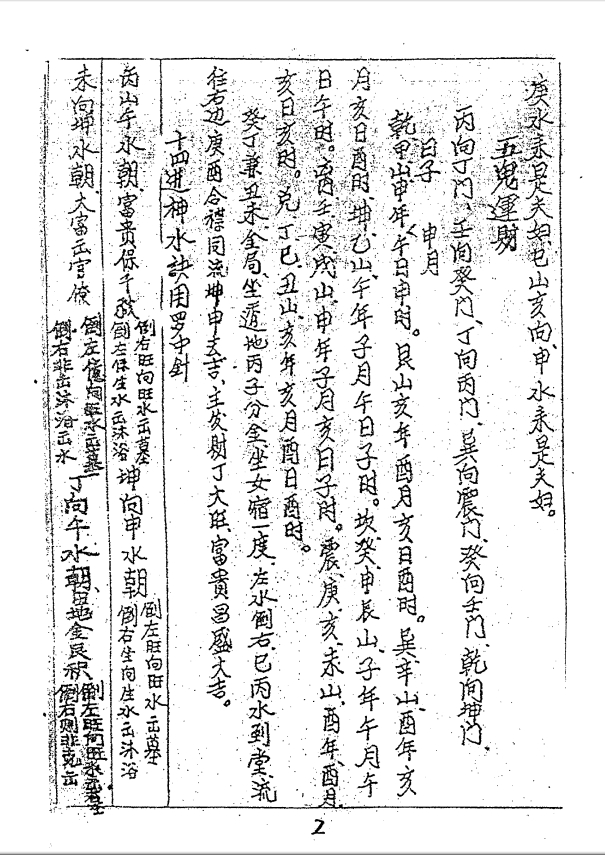 庚水来是夫妇。巳山亥向、申水来是夫妇。
五鬼運財
丙向丁门、壬向癸门、丁向丙门、巽向震门、癸向壬门、乾向坤门、
日子 申月
乾、甲山、申年、午日申时。艮山亥年酉月亥日酉时。巽、辛山、酉年亥
月亥日酉时、坤、乙山、午年子月午日子时。坎、癸、申辰山、子年午月午
日午时。离、壬寅戌山、申年子月亥日子时。震、庚、亥、未山、酉年、酉月
亥日亥时。兑、丁、巳、丑山、亥年亥月酉日酉时。
癸丁兼丑未、全局、坐道地丙子分金、坐女宿一度、左水倒右、巳丙水到堂、流
往右边庚酉合襟同流坤申去吉、主发财丁大旺、富貴昌盛大吉。
十四进神水訣用罗中針
丙山午水朝、富贵保千秋 倒右旺向旺水出墓 倒左保生水出沐浴 坤向申水朝 倒左旺向旺水出墓 倒右生向生水出沐浴
未向坤水朝、大富出官僚 倒左 向旺水出墓 倒右非出沐浴出水 丁向午水朝、 地金艮积 倒左旺向旺水出墓 倒右则非 出
2